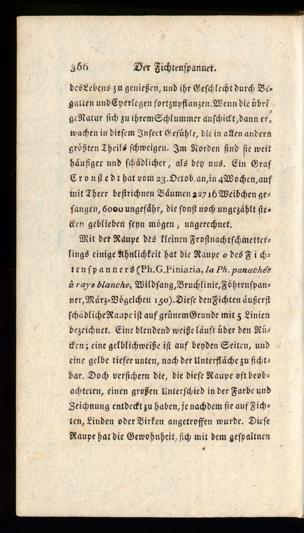 366 Der Fichtenspanner.
des Lebens zu genießen, und ihr Geschlecht durch Be-
gatten und Eyerlegen fortzupflanzen. Wenn die übri-
ge Natur sich zu ihrem Schlummer anschickt, dann er-
wachen in diesem Insect Gefühle, die in allen andern
größten Theils schweigen. Im Norden sind sie weit
häufiger und schädlicher, als bey uns. Ein Graf
Cronstedt hat vom 23. Octob. an, in 4 Wochen, auf
mit Theer bestrichen Bäumen 22716 Weibchen ge-
fangen, 6000 ungefähr, die sonst noch ungezählt ste-
cken geblieben seyn mögen, ungerechnet.
Mit der Raupe des kleinen Frostnachtschmetter-
lings einige Ähnlichkeit hat die Raupe o des Fich-
tenspanners (Ph. G. Piniaria, la Ph. panachée
à rayo blanche, Wildfang, Bruchlinie, Föhrenspan-
ner, März-Vögelchen 150). Diese den Fichten äußerst
schädliche Raupe ist auf grünem Grunde mit 5 Linien
bezeichnet. Eine blendend weiße läuft über den Rü-
cken; eine gelblichweiße ist auf beyden Seiten, und
eine gelbe tiefer unten, nach der Unterfläche zu sicht-
bar. Doch versichern die, die diese Raupe oft beob-
achteten, einen großen Unterschied in der Farbe und
Zeichnung entdeckt zu haben, je nachdem sie auf Fich-
ten, Linden oder Birken angetroffen wurde. Diese
Raupe hat die Gewohnheit, sich mit dem gespaltnen